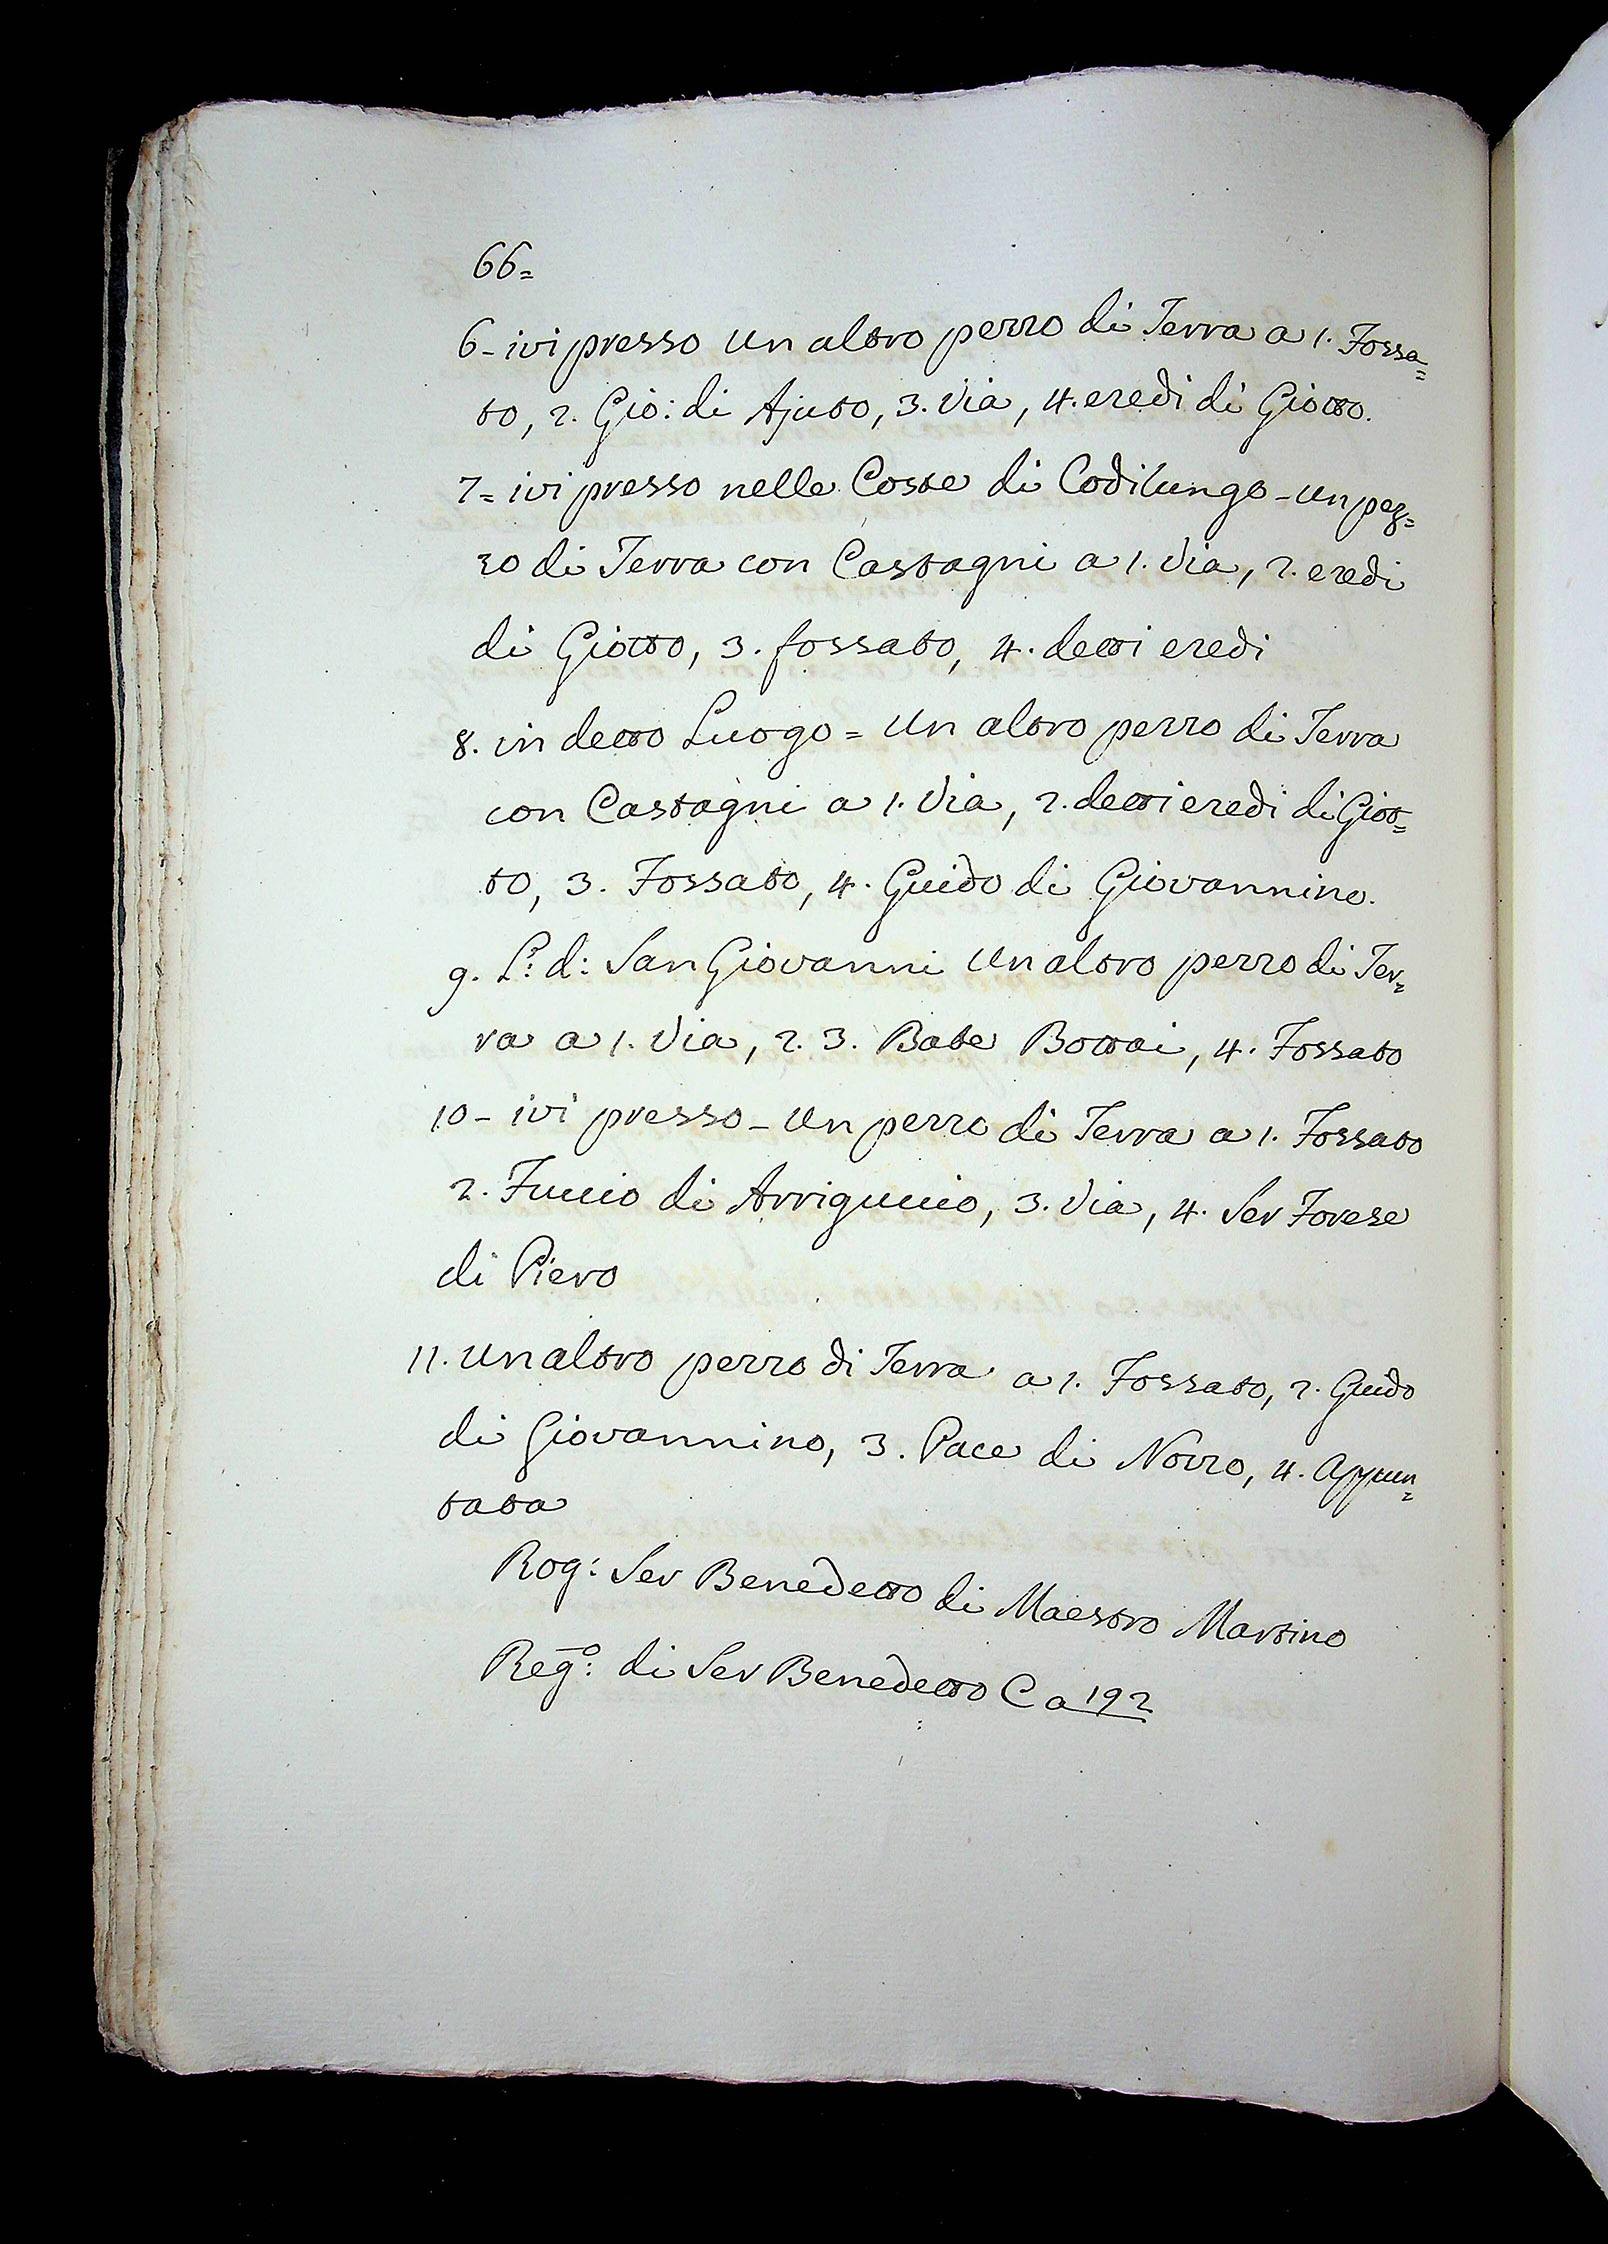 66=
6- ivi presso un altro pezzo di Terra a 1. Fossa=
to, 2. Gio: di Ajuto, 3. Via, 4. eredi di Giotto.
7= ivi presso nelle Coste di Codilungo - un pez=
zo di Terra con Castagni a 1. Via, 2. eredi
di Giotto, 3. fossato, 4. detti eredi
8. in detto Luogo = un altro pezzo di Terra
con Castagni a 1. Via, 2. detti eredi di Giot=
to, 3. Fossato, 4. Guido di Giovannino.
9. L: d: San Giovanni un altro pezzo di Ter=
ra a 1. Via, 2. 3. Bate Bottai, 4. Fossato
10- ivi presso - un pezzo di Terra a 1. Fossato
2. Fuccio di Arriguccio, 3. Via, 4. Ser Forese
di Piero
11. un altro pezzo di Terra a 1. Fossato, 2. Guido
di Giovannino, 3. Pace di Nozzo, 4. Appun=
tata
Rog: Ser Benedetto di Maestro Martino
Reg.º: di Ser Benedetto C a 192